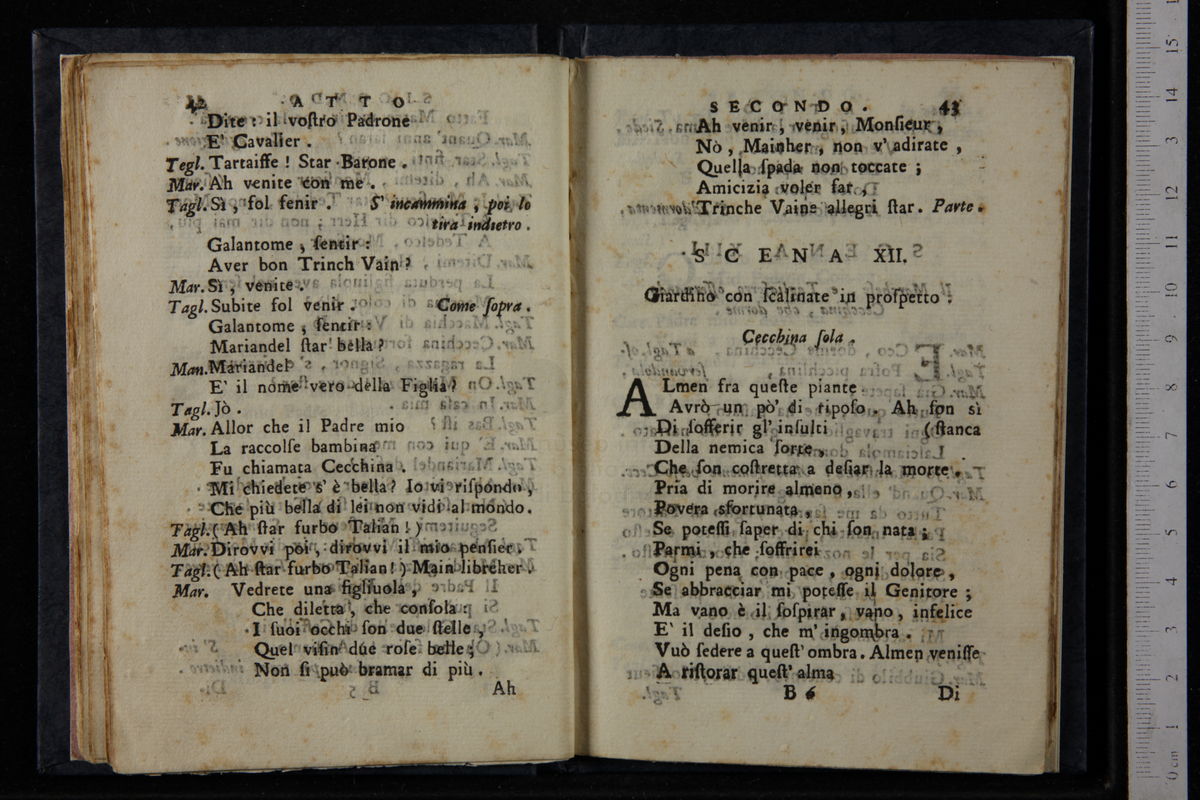 42 ATTO
Dite: il voſtro Padrone
E' Cavalier.
Tegl. Tartaiffe! Star Barone.
Mar. Ah venite con me.
Tagl. Sì, fol fenir. S' incammina, poi lo
tira indietro.
Galantome, ſentir:
Aver bon Trinch Vain?
Mar. Sì, venite.
Tagl. Subite fol venir. Come ſopra.
Galantome, ſentir:
Mariandel ſtar bella?
Man. Mariandel?
E' il nome vero della Figlia?
Tagl. Jò.
Mar. Allor che il Padre mio
La raccolſe bambina
Fu chiamata Cecchina.
Mi chiedete s' è bella? Io vi riſpondo,
Che più bella di lei non vidi al mondo.
Tagl. (Ah ſtar furbo Talian!)
Mar. Dirovvi poi, dirovvi il mio penſier.
Tagl. (Ah ſtar furbo Talian!) Main libreher.
Mar. Vedrete una figliuola,
Che diletta, che conſola:
I ſuoi occhi ſon due ſtelle,
Quel viſin due roſe belle;
Non ſi può bramar di più.
Ah
SECONDO. 43
Ah venir, venir, Monſieur, Siede.
Nò, Mainher, non v' adirate,
Quella ſpada non toccate;
Amicizia voler far,
Trinche Vaine allegri ſtar. Parte.
SCENA XII.
Giardino con ſcalinate in proſpetto.
Cecchina ſola.
ALmen fra queſte piante
Avrò un pò' di ripoſo. Ah ſon sì
Di ſofferir gl' inſulti (ſtanca
Della nemica ſorte,
Che ſon coſtretta a deſiar la morte.
Pria di morire almeno,
Povera sfortunata,
Se poteſſi ſaper di chi ſon nata;
Parmi, che ſoffrirei
Ogni pena con pace, ogni dolore,
Se abbracciar mi poteſſe il Genitore;
Ma vano è il ſoſpirar, vano, infelice
E' il deſio, che m' ingombra.
Vuò ſedere a queſt' ombra. Almen veniſſe
A riſtorar queſt' alma
B 6 Di